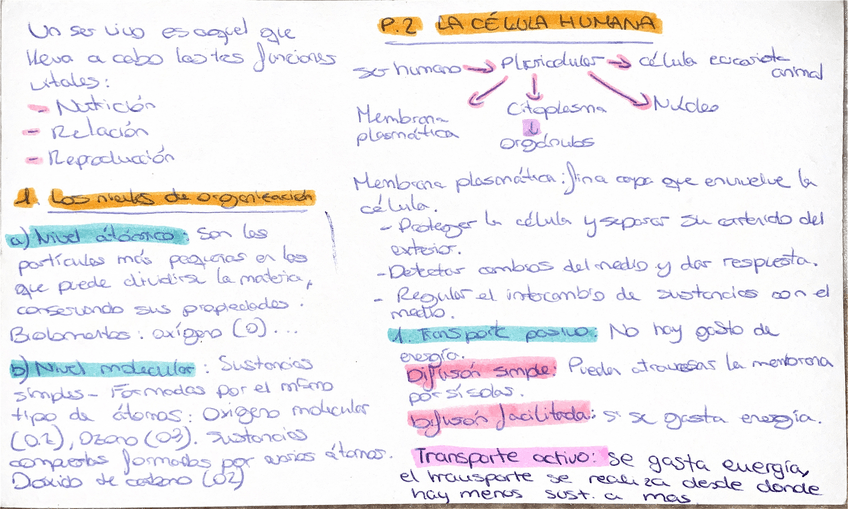 Un ser vivo es aquel que
lleva a cabo las tres funciones
vitales:
- Nutrición
- Relación
- Reproducción
1. Los niveles de organización
a) Nivel atómico: Son las
partículas más pequeñas en las
que puede dividirse la materia,
conservando sus propiedades.
Bioelementos: oxígeno (O)...
b) Nivel molecular: Sustancias
simples - Formadas por el mismo
tipo de átomos: Oxigeno molecular
(O2), Ozono (O3). Sustancias
compuestas formadas por varios átomos.
Dioxido de carbono (O2)
P.2 LA CÉLULA HUMANA
ser humano → Pluricelular → célula eucariota
animal
Membrana
plasmática
Citoplasma
Núcleo
orgánulos
Membrana plasmática: fina capa que envuelve la
célula.
- Proteger la célula y separar su contenido del
exterior.
- Detectar cambios del medio y dar respuesta.
- Regular el intercambio de sustancias con el
medio.
1. Transporte pasivo: No hay gasto de
energía.
Difusión simple: Pueden atravesar la membrana
por sí solas.
Difusión facilitada: si se gasta energía.
Transporte activo: se gasta energía,
el transporte se realiza desde donde
hay menos sust. a mas